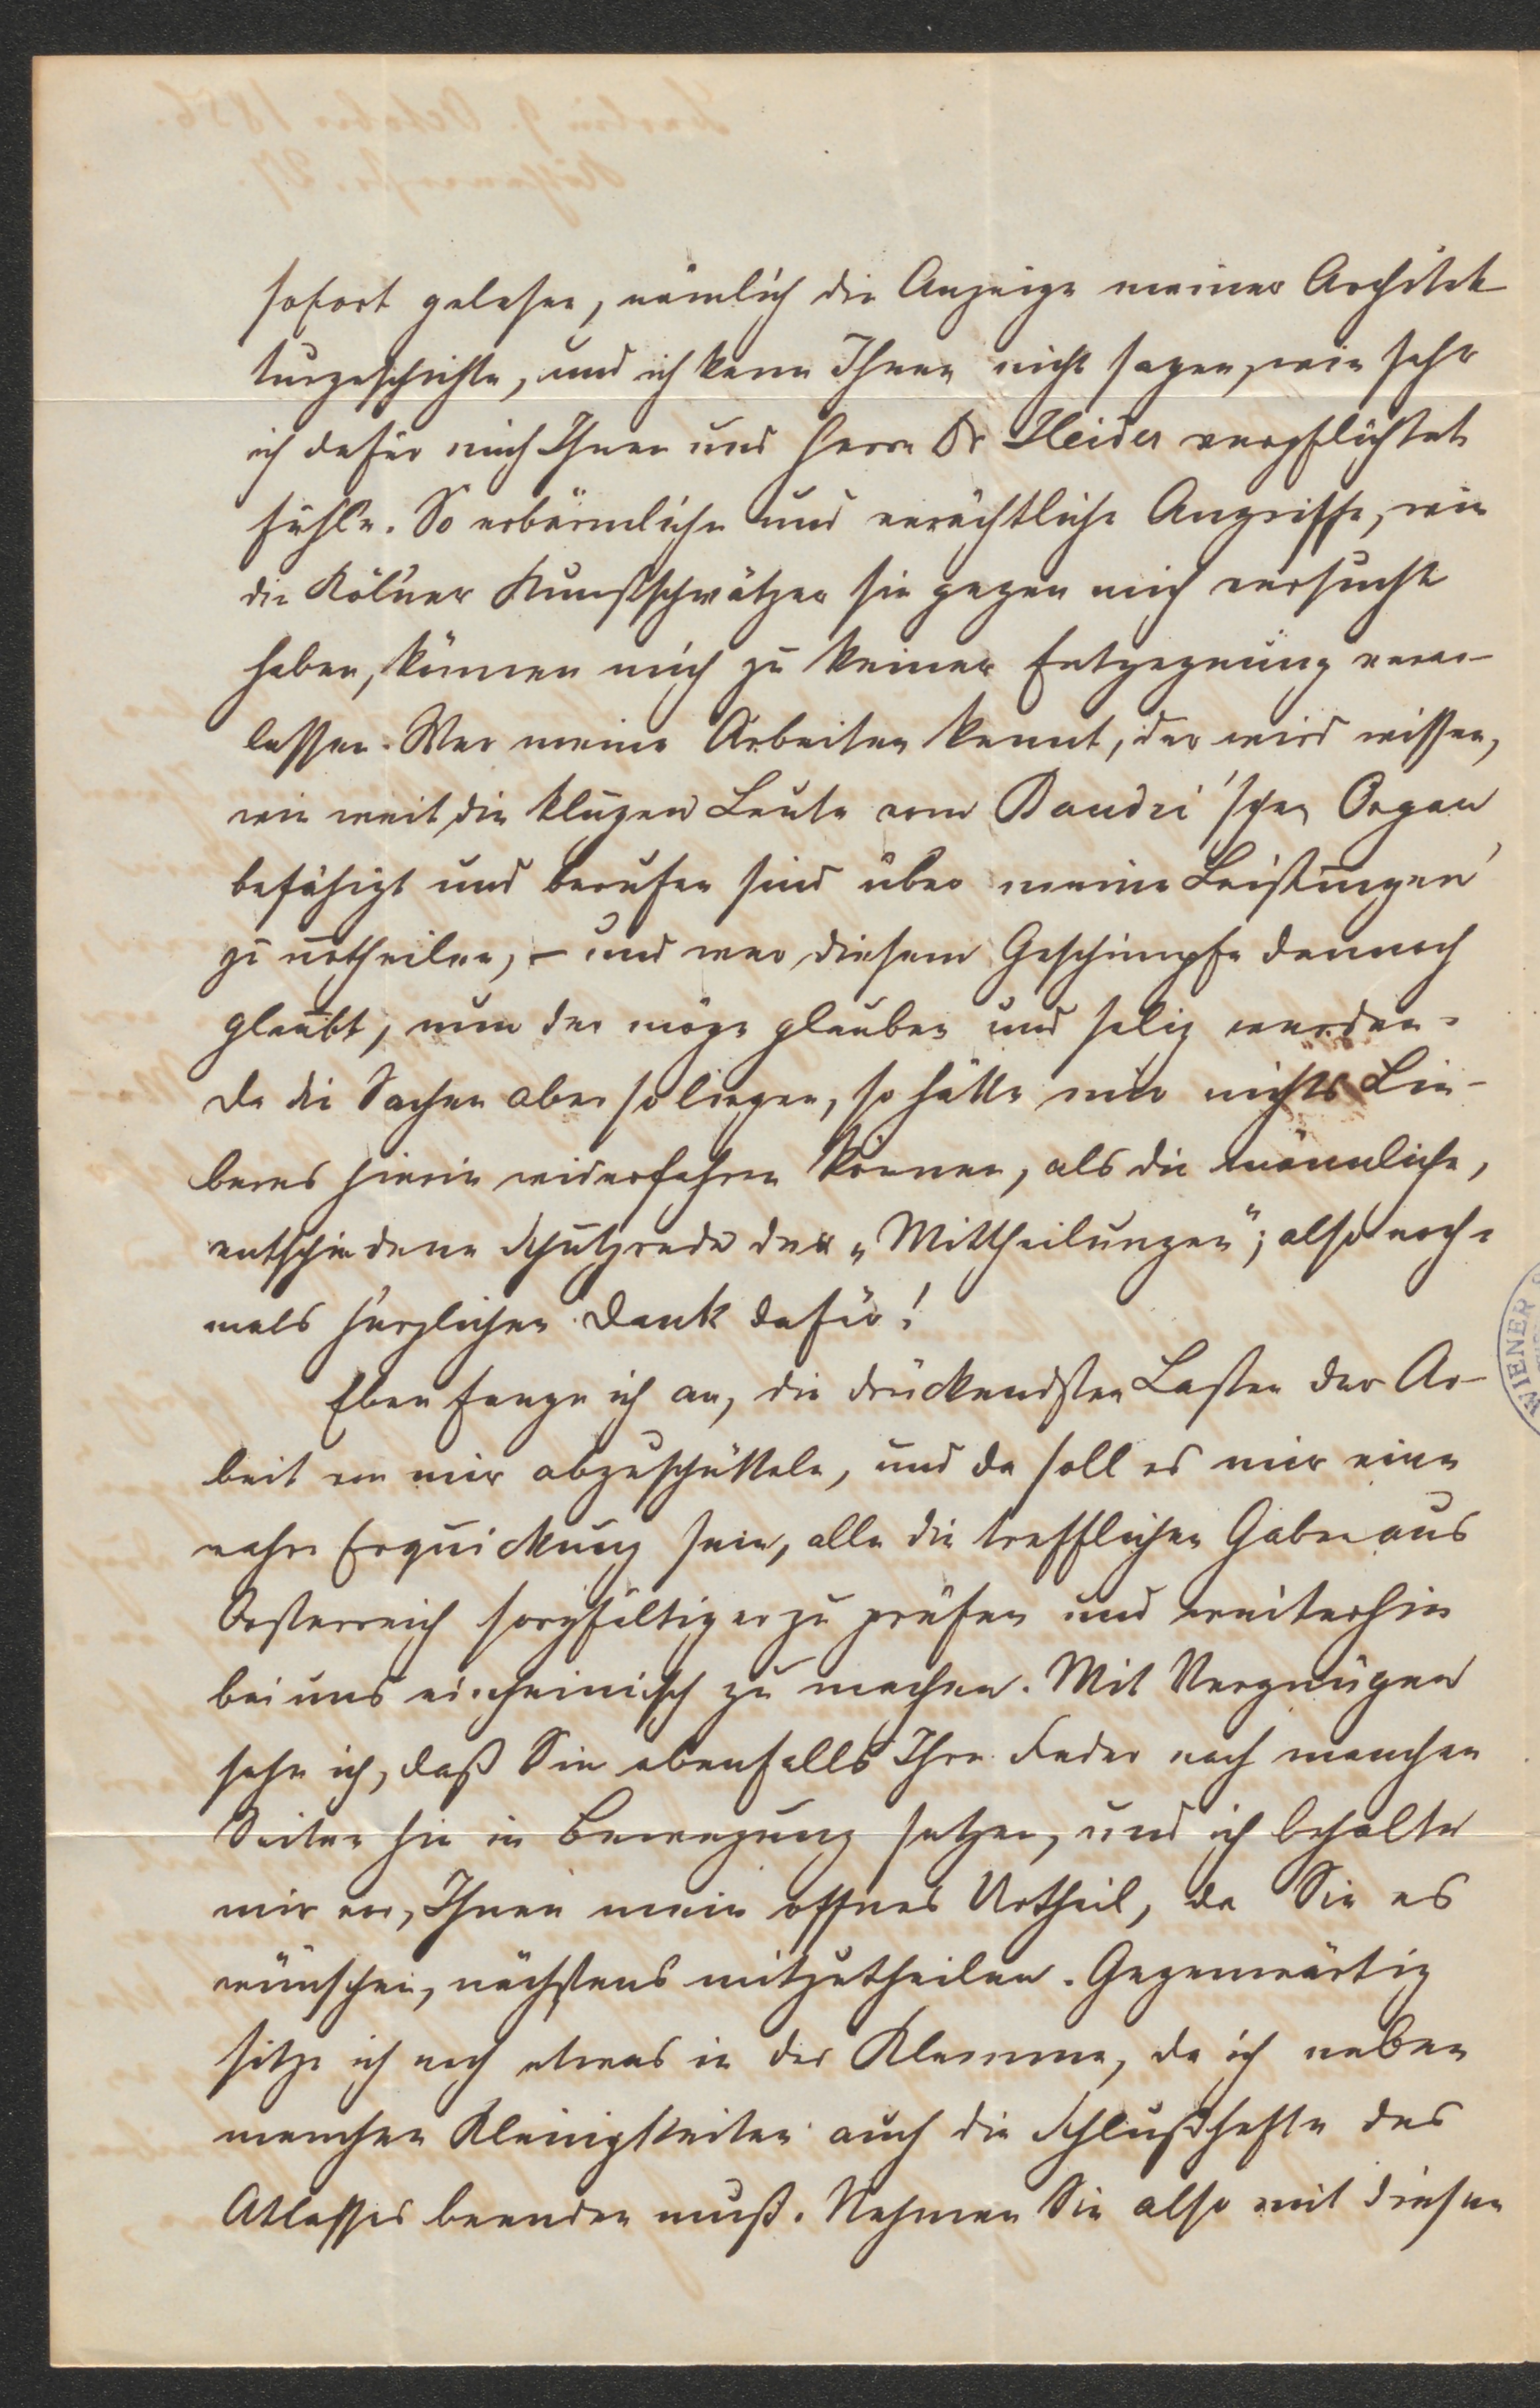 sofort gelesen, nämlich die Anzeige meiner Architek-
turgeschichte, und ich kann Ihnen nicht sagen, wie sehr
ich dafür mich Ihnen und Herrn Dr Heider verpflichtet
fühle. So erbärmliche und verächtliche Angriffe, wie
die Kölner Kunstschwätzer sie gegen mich versucht
haben, können mich zu keiner Entgegnung veran-
lassen. Wer meine Arbeiten kennt, der wird wissen,
wie weit die klugen Leute vom Baudri'schen Organ
befähigt und berufen sind über meine Leistungen
zu urtheilen, – und wer diesem Geschimpfe dennoch
glaubt, nun der möge glauben und selig werden.
Da die Sachen aber so liegen, so hätte mir nichts Lie-
beres hierin widerfahren können, als die männliche,
entschiedene Schutzrede der „Mittheilungen"; also noch-
mals herzlichen Dank dafür!
Eben fange ich an, die drückendsten Lasten der Ar-
beit von mir abzuschütteln, und da soll es mir eine
wahre Erquickung sein, alle die trefflichen Gaben aus
Oesterreich sorgfältiger zu prüfen und weiterhin
bei uns einheimisch zu machen. Mit Vergnügen
sehe ich, daß Sie ebenfalls Ihre Feder nach manchen
Seiten hin in Bewegung setzen, und ich behalte
mir vor, Ihnen mein offnes Urtheil, da Sie es
wünschen, nächstens mitzutheilen. Gegenwärtig
sitze ich noch etwas in der Klemme, da ich neben
manchen Kleinigkeiten auch die Schlußhefte des
Atlasses beenden muß. Nehmen Sie also mit diesen
WIENER